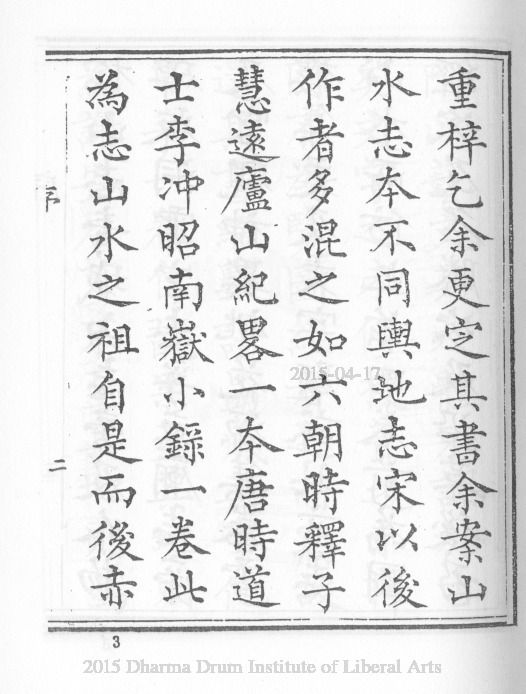 重梓乞余更定其書余案山
水志本不同輿地志宋以後
作者多混之如六朝時釋子
慧遠廬山紀畧一本唐時道
士李冲昭南嶽小錄一卷此
為志山水之祖自是而後赤
序
二
3
2015-04-17
2015 Dharma Drum Institute of Liberal Arts